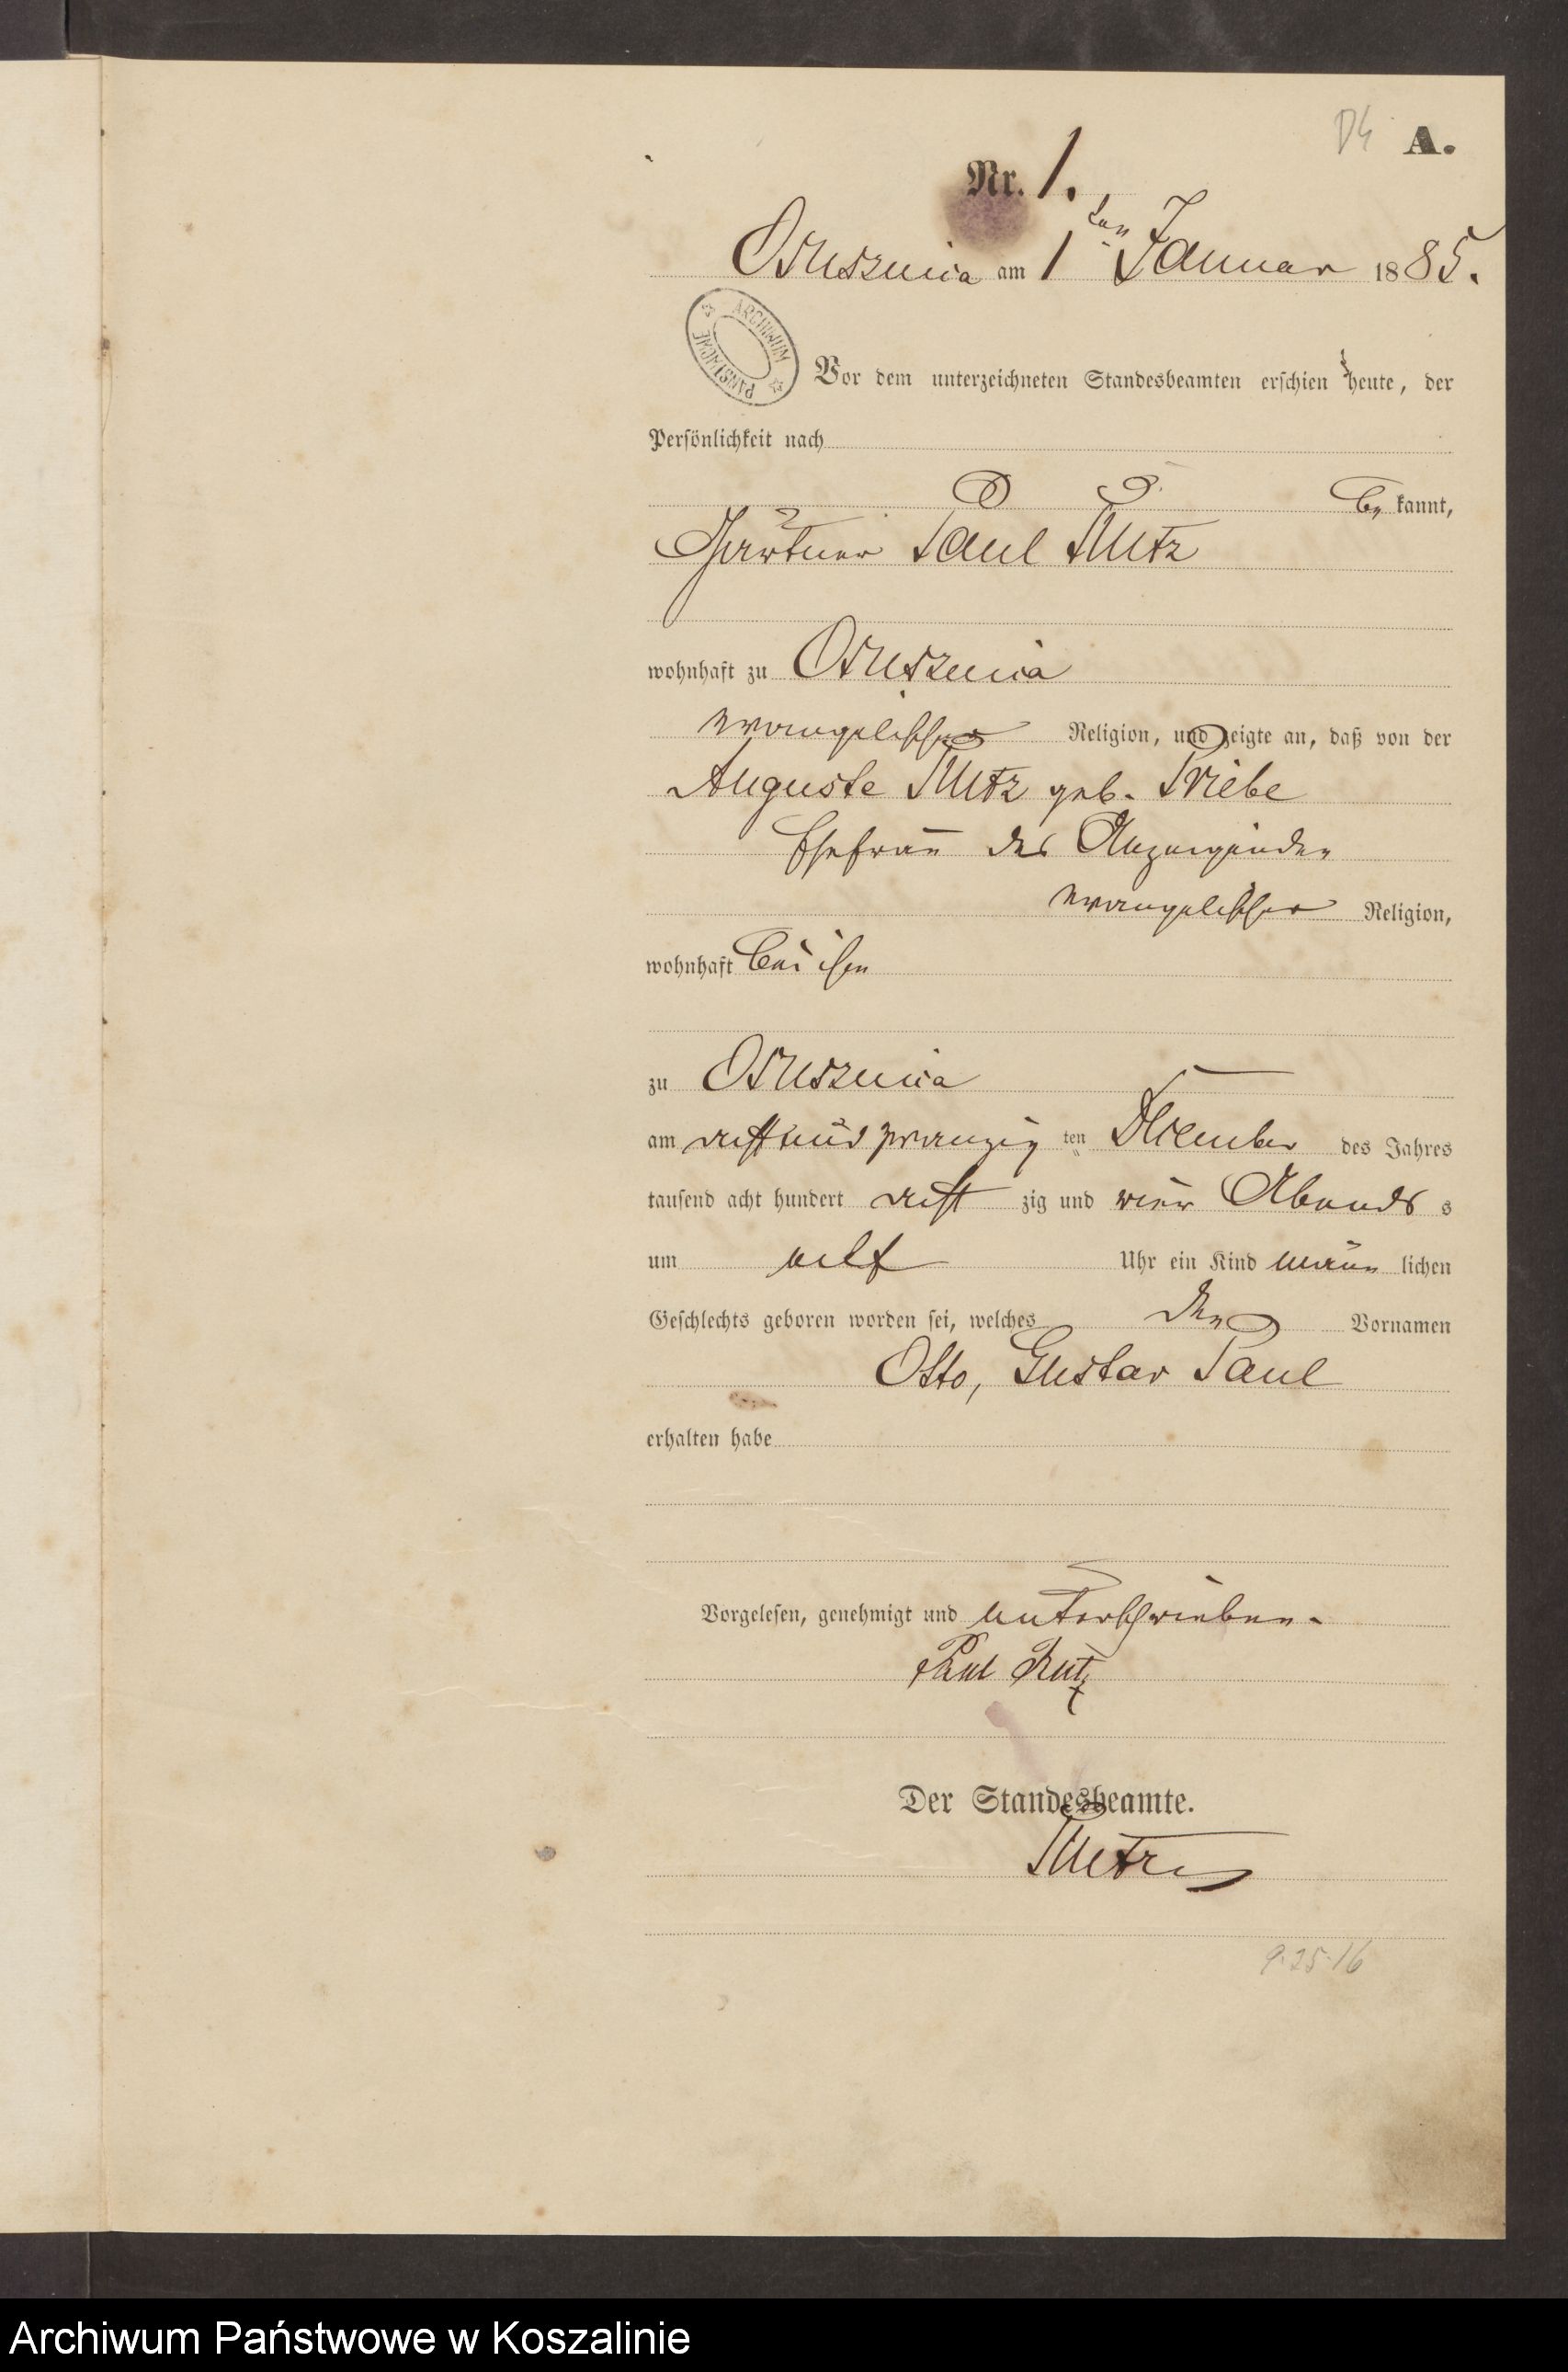 D4 A.
Nr. 1.
Osusznica am 1ten Januar 1885.
ARCHIWUM PAŃSTWOWE
Vor dem unterzeichneten Standesbeamten erschien heute, der
Persönlichkeit nach
be kannt,
Gärtner Paul Rutz
wohnhaft zu Osusznica
evangelischer Religion, und zeigte an, daß von der
Auguste Rutz geb. Priebe
Ehefrau des Anzeigenden
evangelischer Religion,
wohnhaft bei ihm
zu Osusznica
am acht und zwanzig ten Dezember des Jahres
tausend acht hundert acht zig und vier Abends s
um elf Uhr ein Kind männ lichen
Geschlechts geboren worden sei, welches den Vornamen
Otto, Gustav Paul
erhalten habe
Vorgelesen, genehmigt und unterschrieben.
Paul Rutz
Der Standesbeamte.
9.25.16
Archiwum Państwowe w Koszalinie